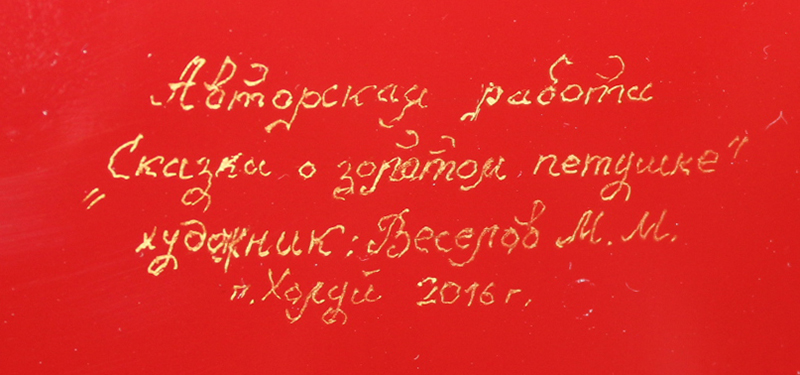 Авторская работа
„Сказка о золотом петушке"
художник: Веселов М. М.
п. Холуй 2016 г.